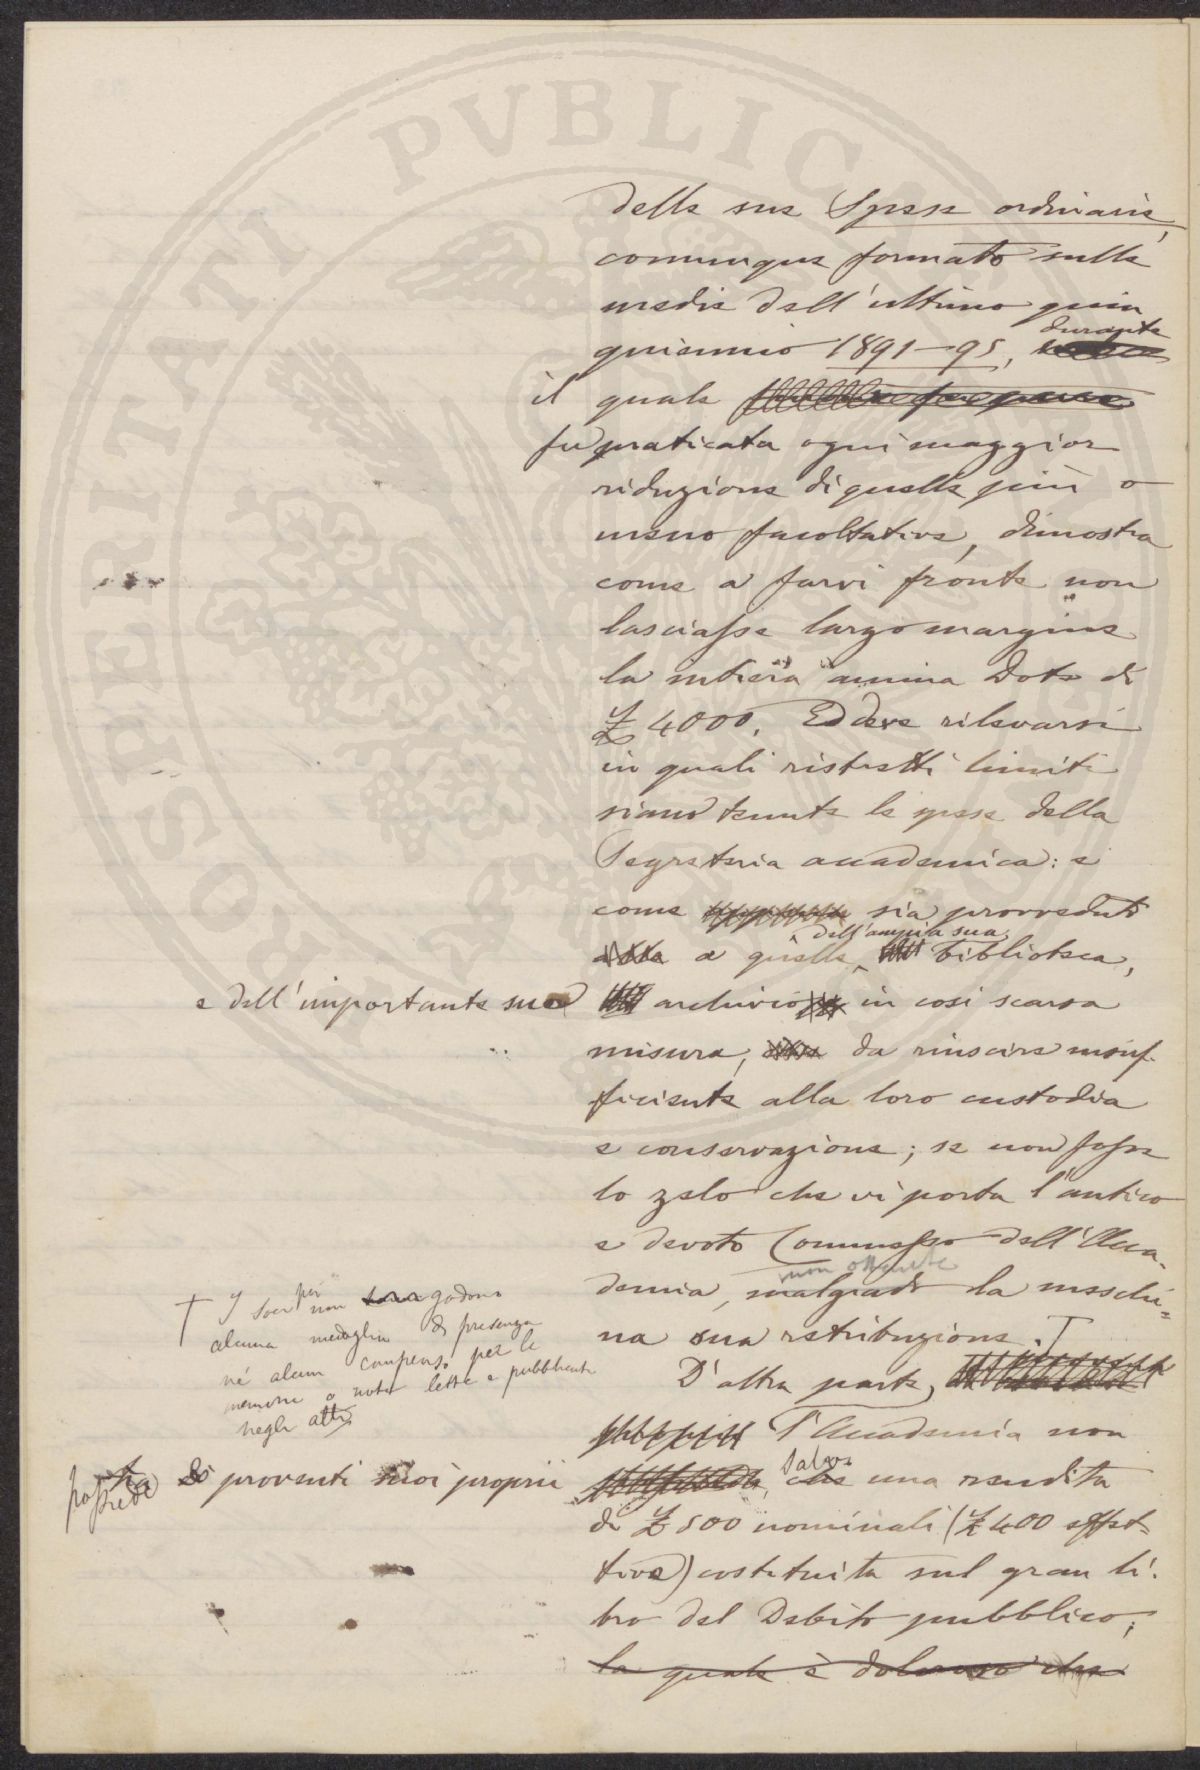 delle sue Spese ordinarie,
comunque formato sulla
media dell'ultimo quin
quiennio 1891-95, durante
il quale
fu praticata ogni maggior
riduzione di quelle più o
meno facoltative, dimostra
come a farvi fronte non
lasciasse largo margine
la intiera annua Dote di
£ 4000. Ed deve rilevarsi
in quali ristretti limiti
siano tenute le spese della
Segreteria accademica: e
come sia provveduto
a quelle dell'ampia sua biblioteca,
e dell'importante suo archivio in così scarsa
misura, da riuscire insuf-
ficiente alla loro custodia
e conservazione; se non fosse
lo zelo che vi porta l'antico
e devoto Commesso dell'Acca-
demia, malgrado la meschi=
non ostante
na sua retribuzione. †
† I Soci poi non godono
alcuna medaglia di presenza
né alcun compenso per le
memorie o note lette e pubblicate
negli atti
D'altra parte,
l'Accademia non
possiede proventi suoi proprii
salvo una rendita
di £ 500 nominali (£ 400 effet=
tive) costituita sul gran li-
bro del Debito pubblico;
la quale è doloroso che
PVBLICAE
PROSPERITATI